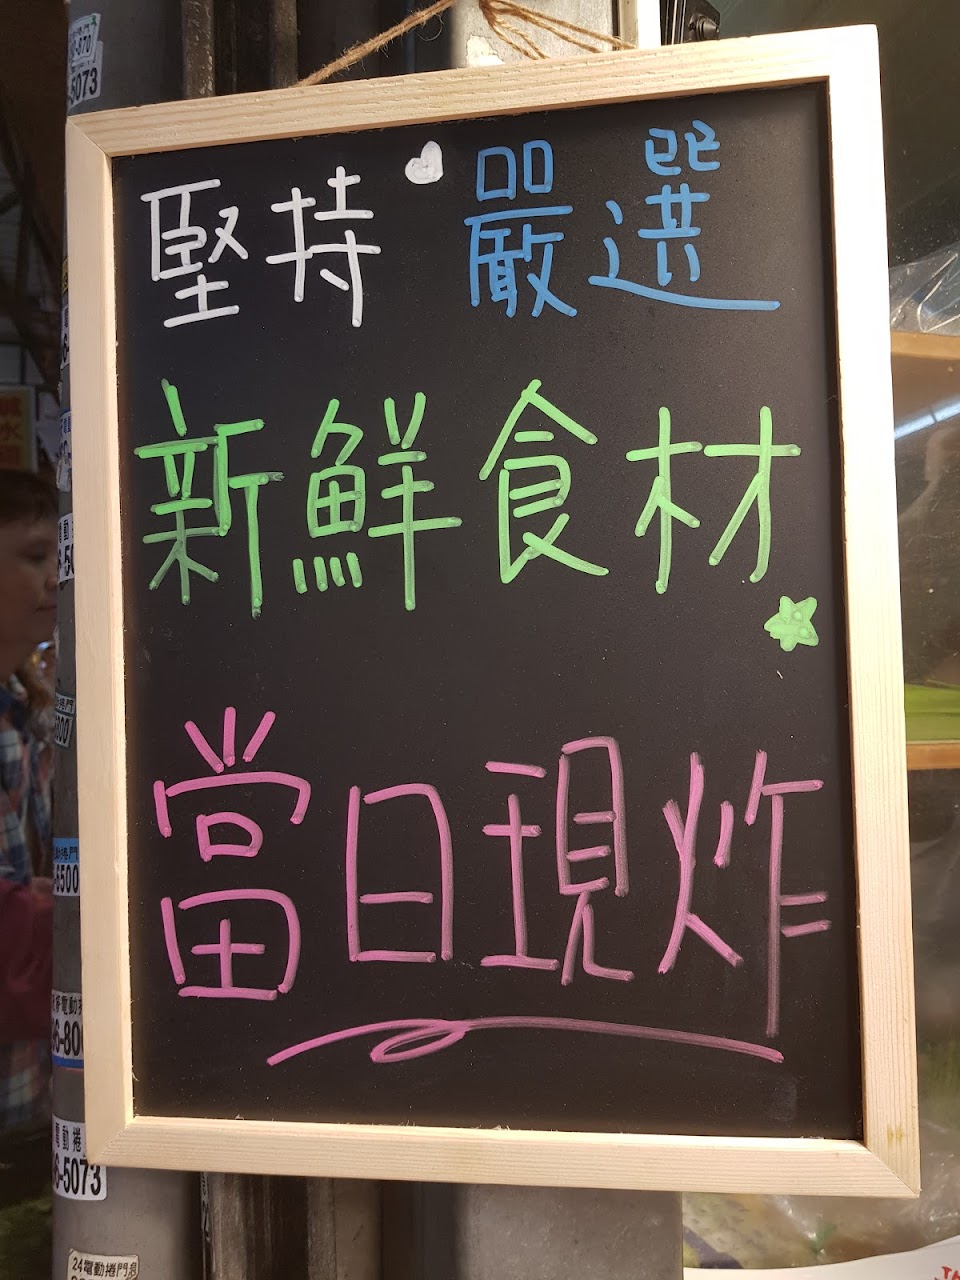 堅持 嚴選
新鮮食材
當日現炸
5073
6500
電動捲
6-5073
24電動捲門